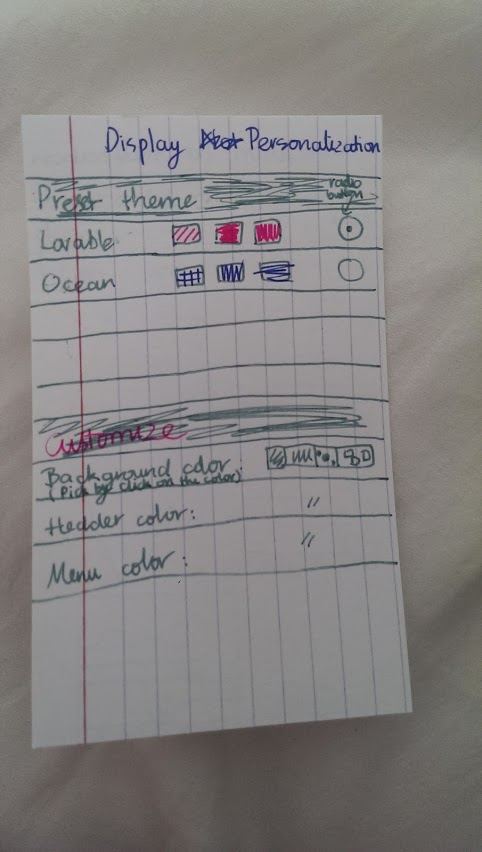 Display Personalization
Preset theme
radio
button
Lovable
Ocean
Customize
Background color :
(Pick by click on the color)
Header color :
〃
Menu color :
〃